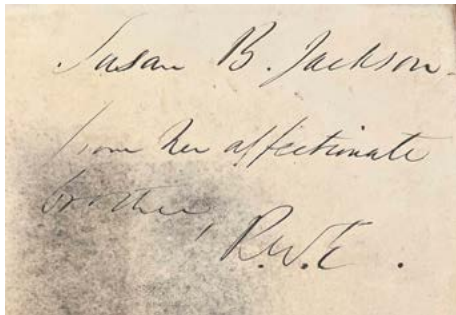 Susan B. Jackson -
from her affectionate
brother,
R.W.E.